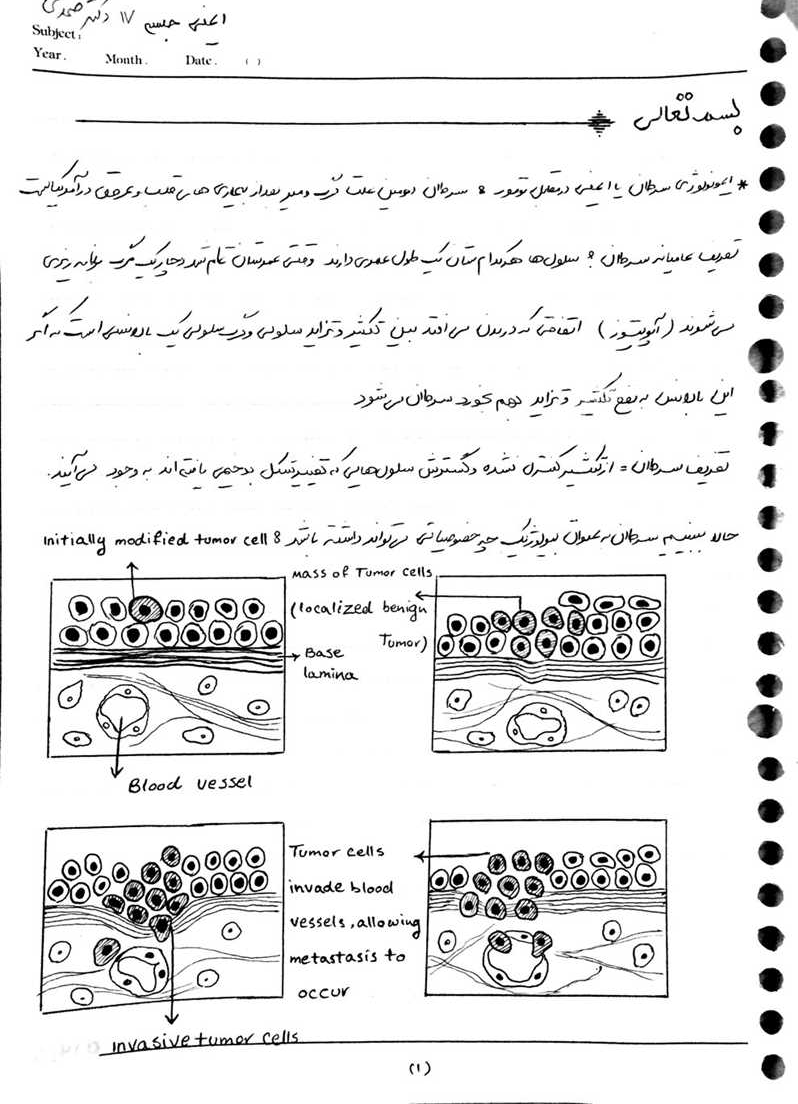 ایمنی جلسه ۱۷ دکتر صمدی
Subject:
Year. Month. Date. ( )
بسمه تعالی
* ایمونولوژی سرطان یا ایمنی در مقابل تومور : سرطان دومین علت مرگ و میر بعد از بیماری های قلب و عروق در آمریکاست
تعریف عامیانه سرطان : سلول‌ها هرکدام شان یک طول عمری دارند وقتی عمرشان تمام شد دچار یک مرگ برنامه ریزی
می‌شوند (آپوپتوز) اتفاقی که در بدن می افتد بین تکثیر و تزاید سلولی و مرگ سلولی یک بالانسی است که اگر
این بالانس به نفع تکثیر و تزاید بهم بخورد سرطان می‌شود
تعریف سرطان = از تکثیر کنترل نشده و گسترش سلول‌هایی که تغییر شکل بدخیمی یافته اند به وجود می‌آیند.
حالا ببینیم سرطان به عنوان بیولوژیک چه خصوصیاتی می‌تواند داشته باشد :
Initially modified tumor cell
Mass of Tumor cells
(localized benign
Tumor)
Base
lamina
Blood vessel
Tumor cells
invade blood
vessels, allowing
metastasis to
occur
invasive tumor cells
(1)